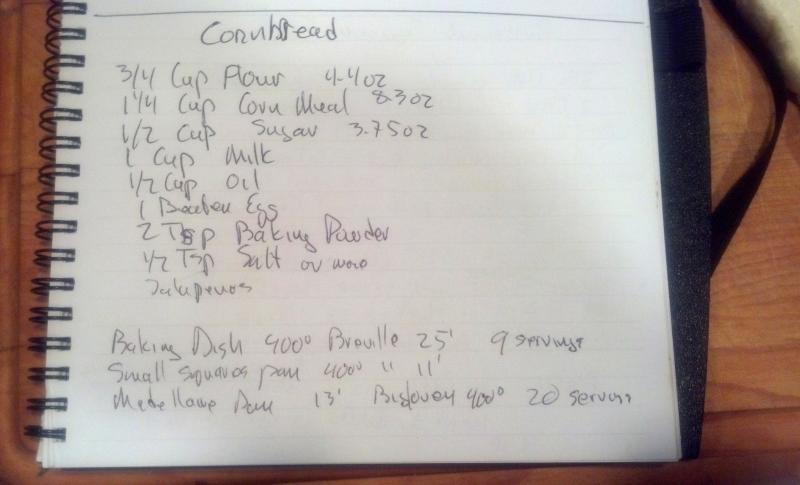 Cornbread
3/4 Cup Flour 4.4oz
1 1/4 Cup Corn Meal 8.3oz
1/2 Cup Sugar 3.75oz
1 Cup Milk
1/2 Cup Oil
1 Beaten Eggs
2 Tsp Baking Powder
1/2 Tsp Salt or more
Jalapenos
Baking Dish 400° Breville 25' 9 servings
Small squares pan 400° " 11'
Pan 13' 400° 20 servings